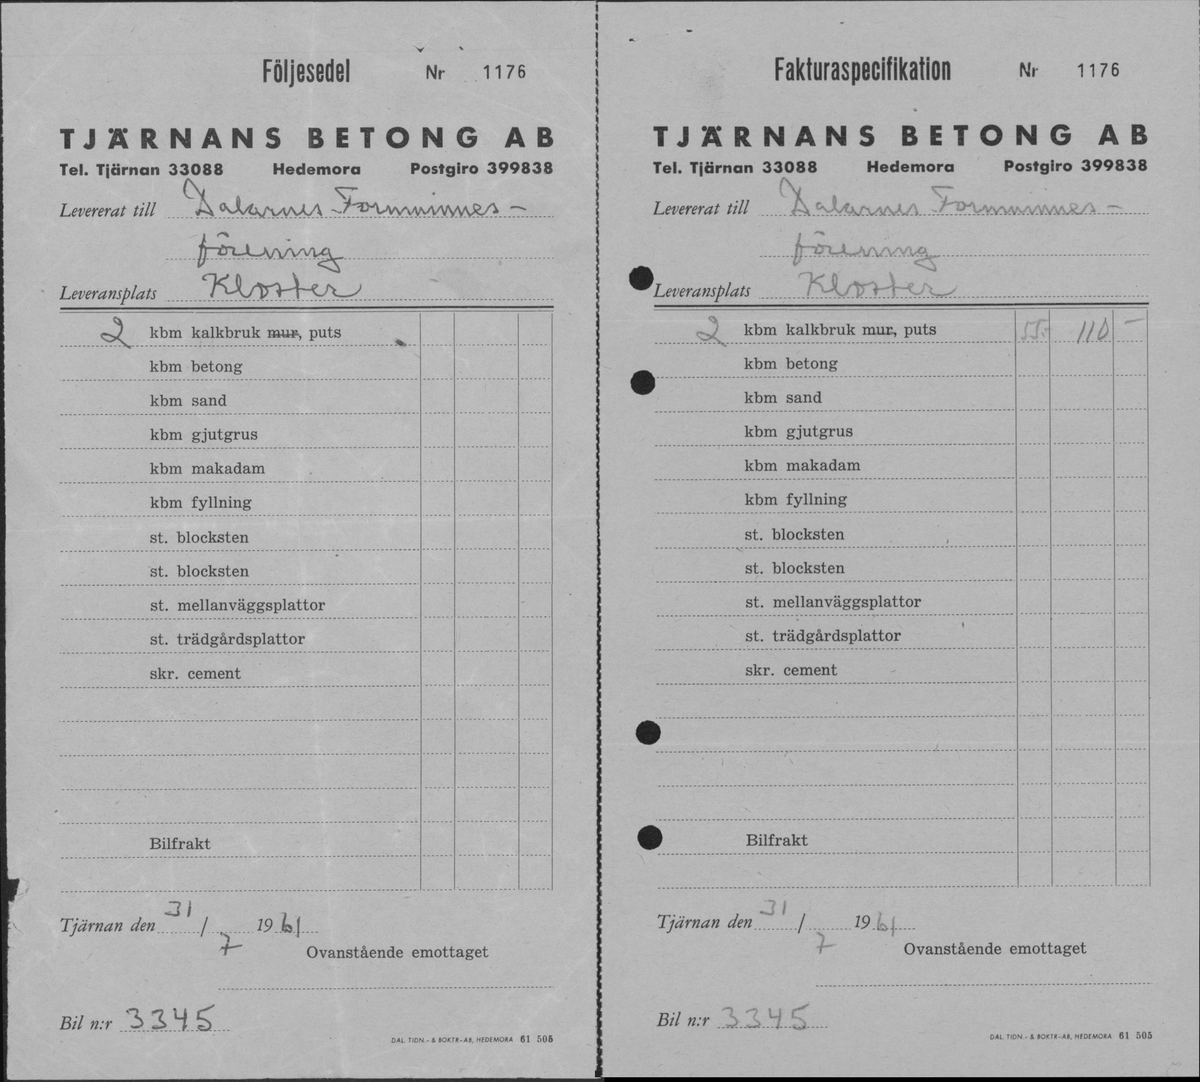 Följesedel Nr 1176
TJÄRNANS BETONG AB
Tel. Tjärnan 33088 Hedemora Postgiro 399838
Levererat till Dalarnes Fornminnes-
förening
Leveransplats Kloster
2 kbm kalkbruk mur, puts
kbm betong
kbm sand
kbm gjutgrus
kbm makadam
kbm fyllning
st. blocksten
st. blocksten
st. mellanväggsplattor
st. trädgårdsplattor
skr. cement
Bilfrakt
Tjärnan den 31/7 1961
Ovanstående emottaget
Bil n:r 3345
DAL. TIDN.- & BOKTR-AB, HEDEMORA 61 505
Fakturaspecifikation Nr 1176
TJÄRNANS BETONG AB
Tel. Tjärnan 33088 Hedemora Postgiro 399838
Levererat till Dalarnes Fornminnes-
förening
Leveransplats Kloster
2 kbm kalkbruk mur, puts 55:- 110 -
kbm betong
kbm sand
kbm gjutgrus
kbm makadam
kbm fyllning
st. blocksten
st. blocksten
st. mellanväggsplattor
st. trädgårdsplattor
skr. cement
Bilfrakt
Tjärnan den 31/7 1961
Ovanstående emottaget
Bil n:r 3345
DAL. TIDN.- & BOKTR-AB, HEDEMORA 61 505